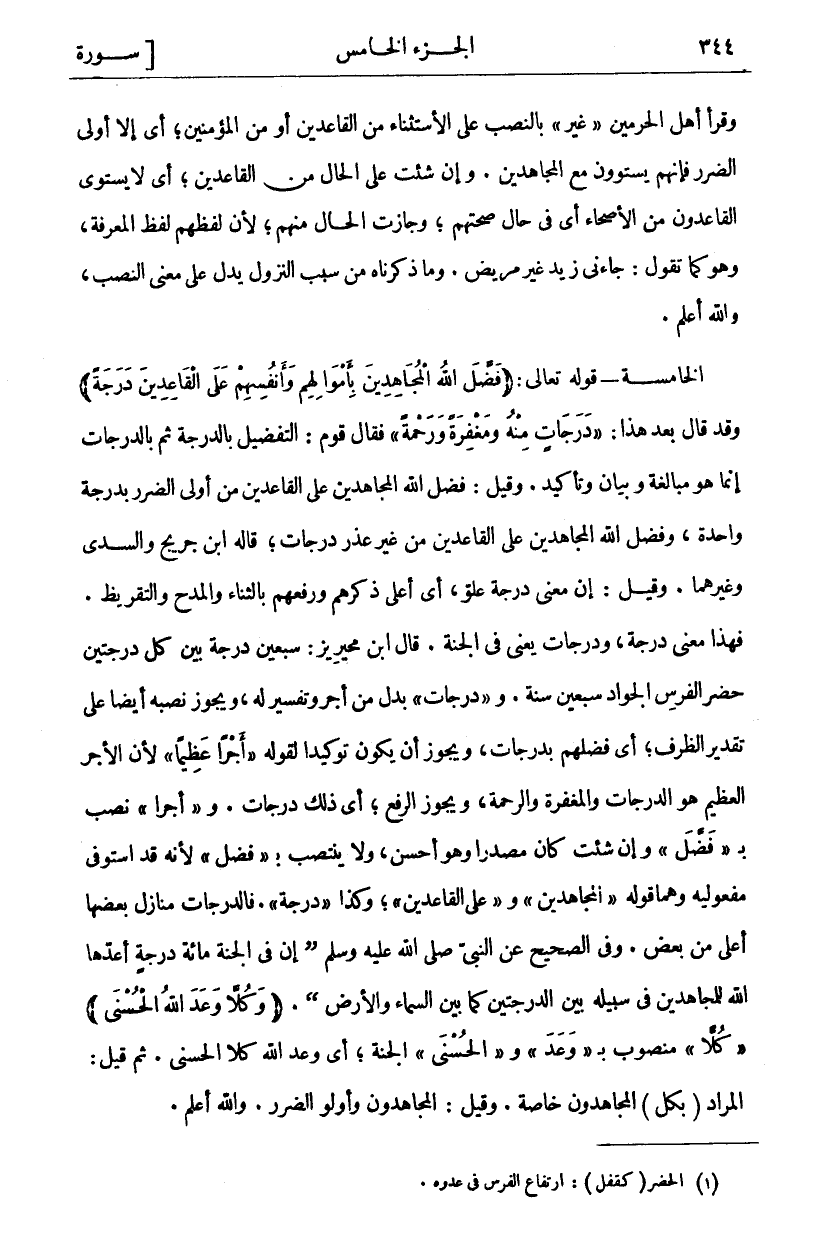 ٣٤٤ الجـزء الخـامس [ ســورة
وقرأ أهل الحرمين « غير » بالنصب على الأستثناء من القاعدين أو من المؤمنين؛ أى إلا أولى
الضرر فإنهم يستوون مع المجاهدين . وإن شئت على الحال من القاعدين ؛ أى لا يستوى
القاعدون من الأصحاء أى فى حال صحتهم ؛ وجازت الحـال منهم ؛ لأن لفظهم لفظ المعرفة،
وهو كما تقول : جاءنى زيد غير مريض . وما ذكرناه من سبب النزول يدل على معنى النصب،
والله أعلم .
الخامســة ــ قوله تعالى : ﴿ فَضَّلَ اللهُ الْمُجَاهِدِينَ بِأَمْوَالِهِمْ وَأَنْفُسِهِمْ عَلَى الْقَاعِدِينَ دَرَجَةً ﴾
وقد قال بعد هذا : « دَرَجَاتٍ مِنْهُ وَمَغْفِرَةً وَرَحْمَةً » فقال قوم : التفضيل بالدرجة ثم بالدرجات
إنما هو مبالغة وبيان وتأكيد . وقيل : فضل الله المجاهدين على القاعدين من أولى الضرر بدرجة
واحدة ، وفضل الله المجاهدين على القاعدين من غير عذر درجات ؛ قاله ابن جريج والسـدى
وغيرهما . وقيـل : إن معنى درجة علوّ ، أى أعلى ذكرهم ورفعهم بالثناء والمدح والتقريظ .
فهذا معنى درجة، ودرجات يعنى فى الجنة . قال ابن محيريز : سبعين درجة بين كل درجتين
حضر الفرسِ الجواد سبعين سنة . و « درجات » بدل من أجر وتفسير له ، ويجوز نصبه أيضا على
تقدير الظرف؛ أى فضلهم بدرجات، ويجوز أن يكون توكيدا لقوله « أَجْرًا عَظِيمًا » لأن الأجر
العظيم هو الدرجات والمغفرة والرحمة، ويجوز الرفع ؛ أى ذلك درجات . و « أجرا » نصب
بـ « فَضَّلَ » وإن شئت كان مصدرا وهو أحسن، ولا ينتصب بـ « فضل » لأنه قد استوفى
مفعوليه وهما قوله « المجاهدين » و « على القاعدين » ؛ وكذا « درجة » . فالدرجات منازل بعضها
أعلى من بعض . وفى الصحيح عن النبىّ صلى الله عليه وسلم ” إن فى الجنة مائة درجةٍ أعدّها
الله للمجاهدين فى سبيله بين الدرجتين كما بين السماء والأرض “ . ﴿ وَكُلًّا وَعَدَ اللهُ الْحُسْنَى ﴾
« كُلًّا » منصوب بـ « وَعَدَ » و « الْحُسْنَى » الجنة ؛ أى وعد الله كلا الحسنى . ثم قيل :
المراد ( بكل ) المجاهدون خاصة . وقيل : المجاهدون وأولو الضرر . والله أعلم .
(١) الحضر ( كقفل ) : ارتفاع الفرس فى عدوه .